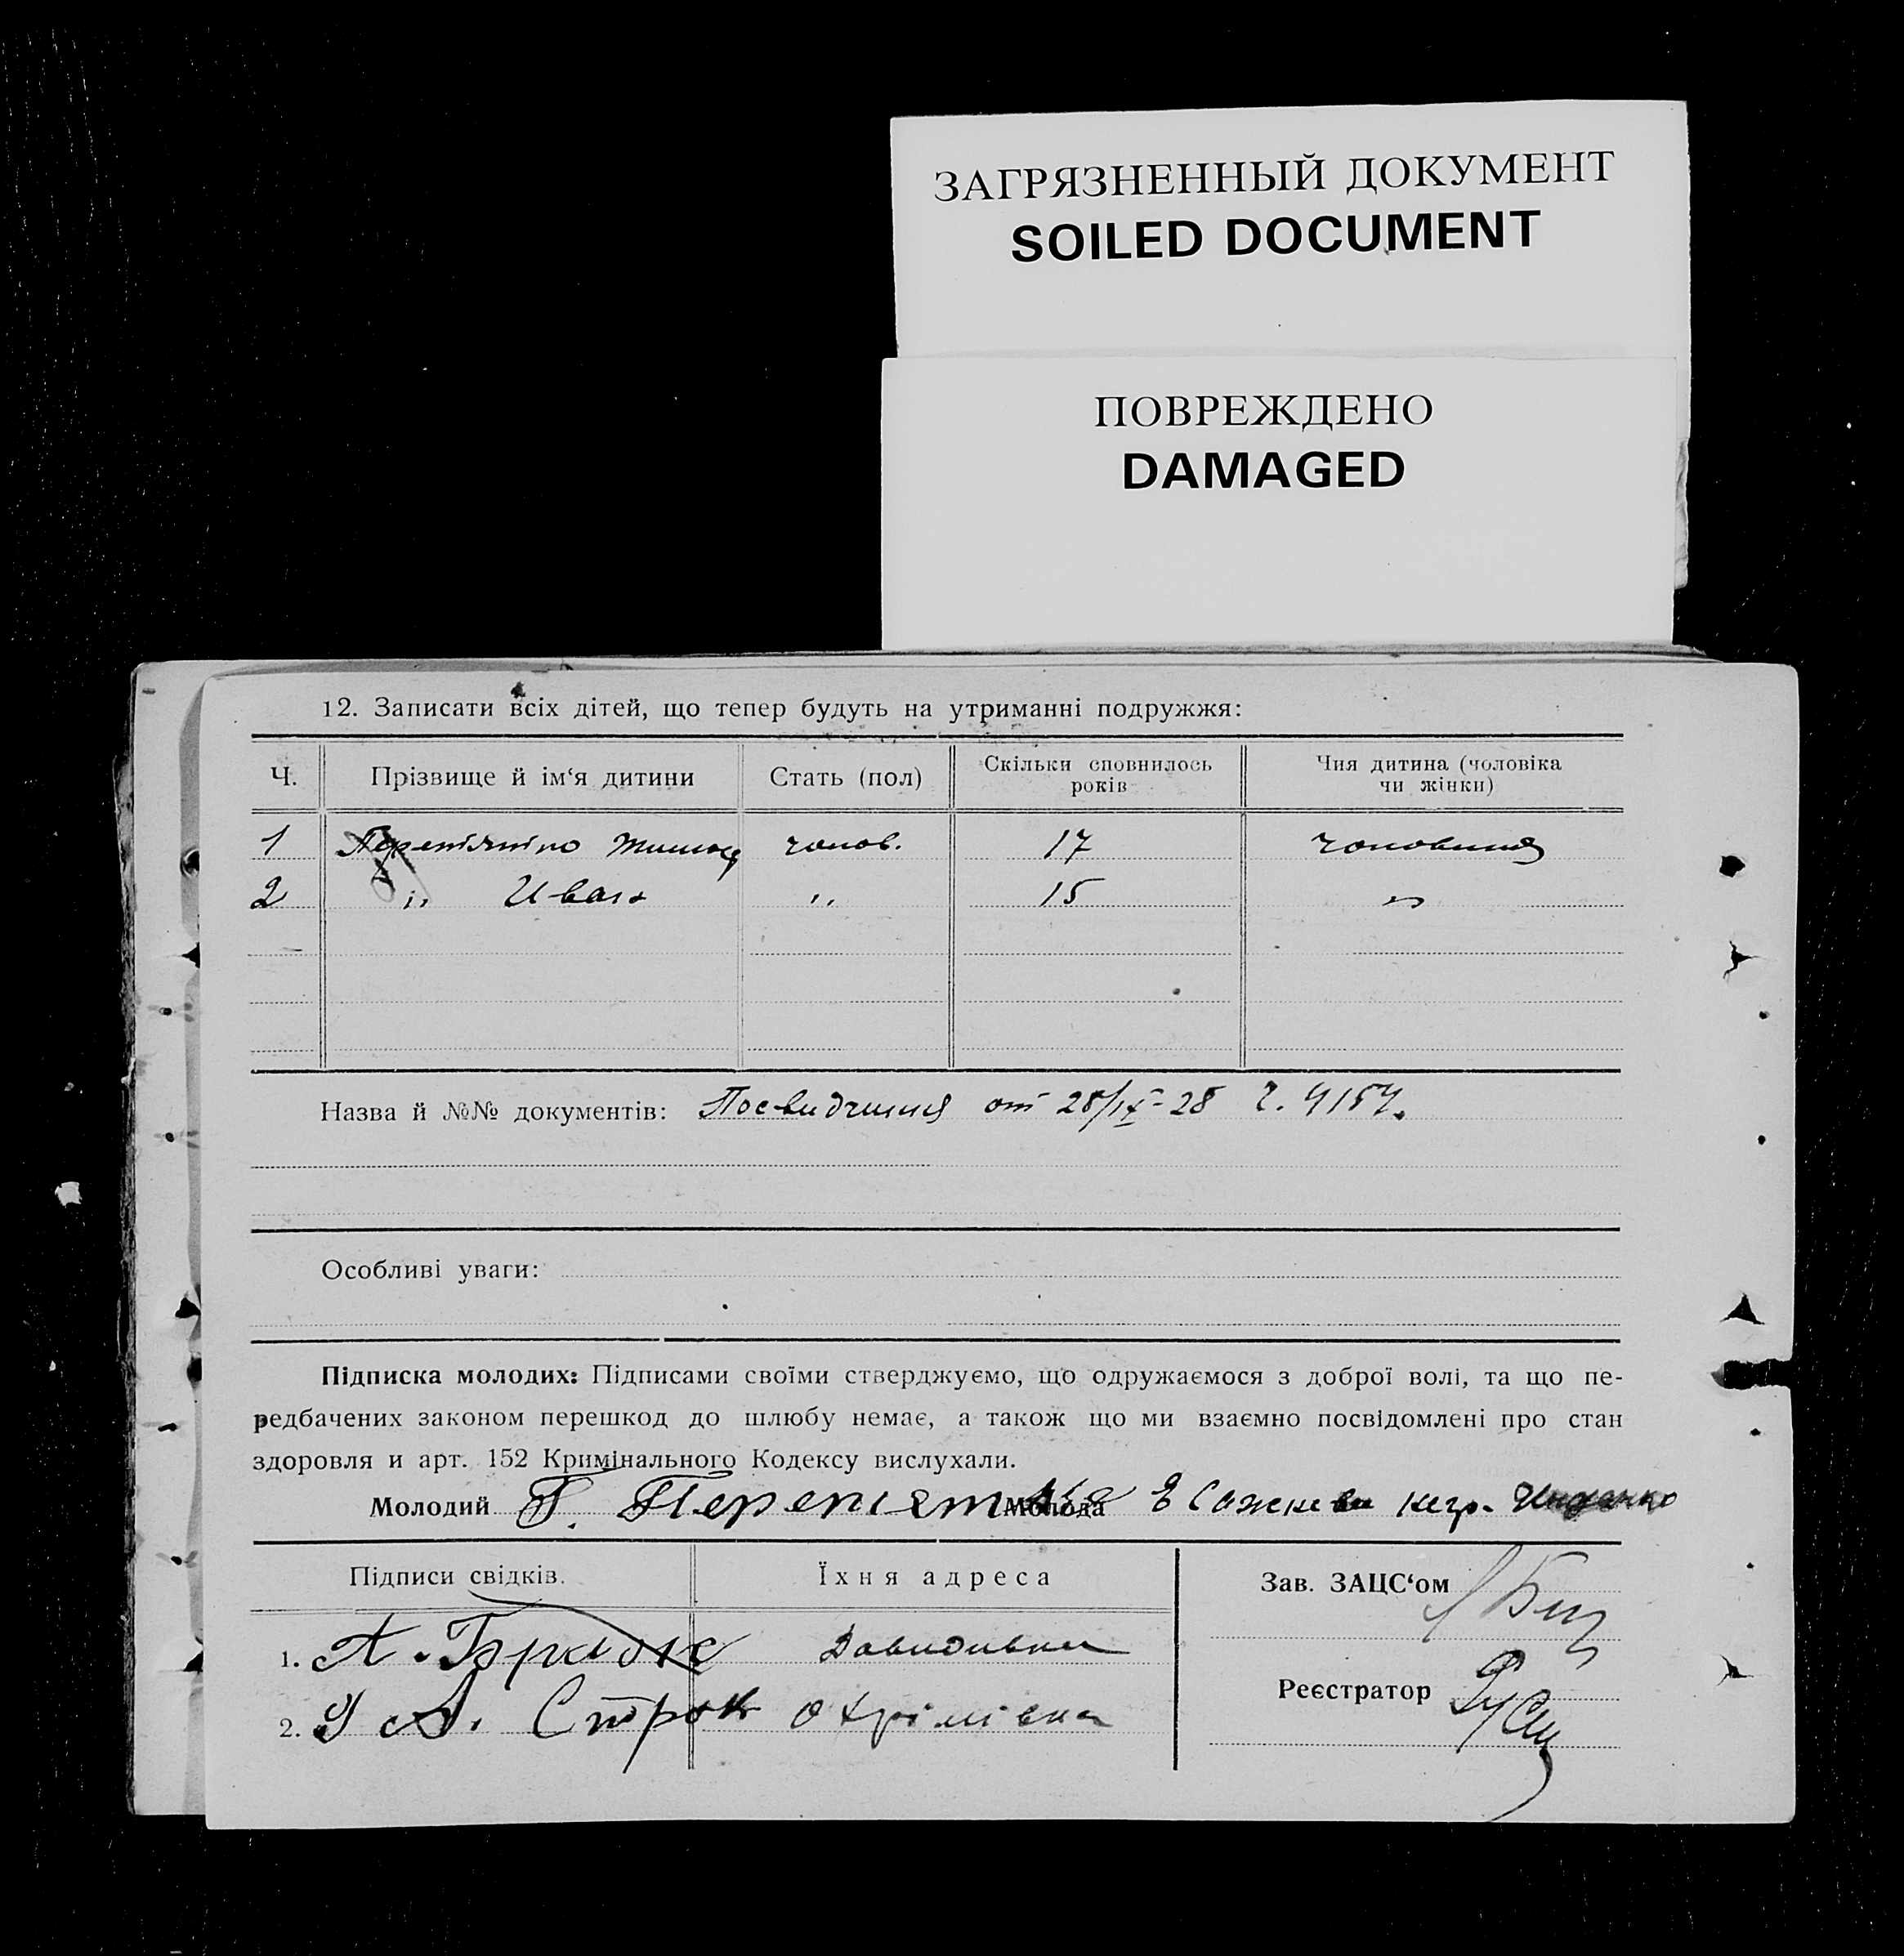 ЗАГРЯЗНЕННЫЙ ДОКУМЕНТ
SOILED DOCUMENT
ПОВРЕЖДЕНО
DAMAGED
12. Записати всіх дітей, що тепер будуть на утриманні подружжя:
Ч. Прізвище й ім‘я дитини Стать (пол) Скільки сповнилось років Чия дитина (чоловіка чи жінки)
1 чолов. 17
2 „ Иван „ 15 „
Назва й №№ документів: Посвидчиння от 28/IX-28 Ч. 4154.
Особливі уваги:
Підписка молодих: Підписами своїми стверджуємо, що одружаємося з доброї волі, та що пе-
редбачених законом перешкод до шлюбу немає, а також що ми взаємно посвідомлені про стан
здоровля и арт. 152 Кримінального Кодексу вислухали.
Молодий Молода
Підписи свідків. Їхня адреса Зав. ЗАЦС‘ом
1. Давидивка
Реєстратор
2. Строк Охрімівка